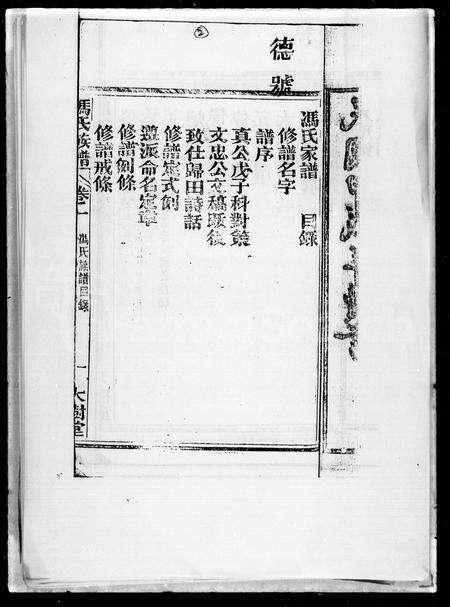 ②
德號
馮氏家譜 目錄
修譜名字
譜序
真公戊子科對策
文忠公文稿跋後
致仕歸田詩話
修譜定式創
遵派命名定章
修譜創條
修譜戒條
馮氏族譜 卷一 馮氏族譜目錄 一 大樹堂